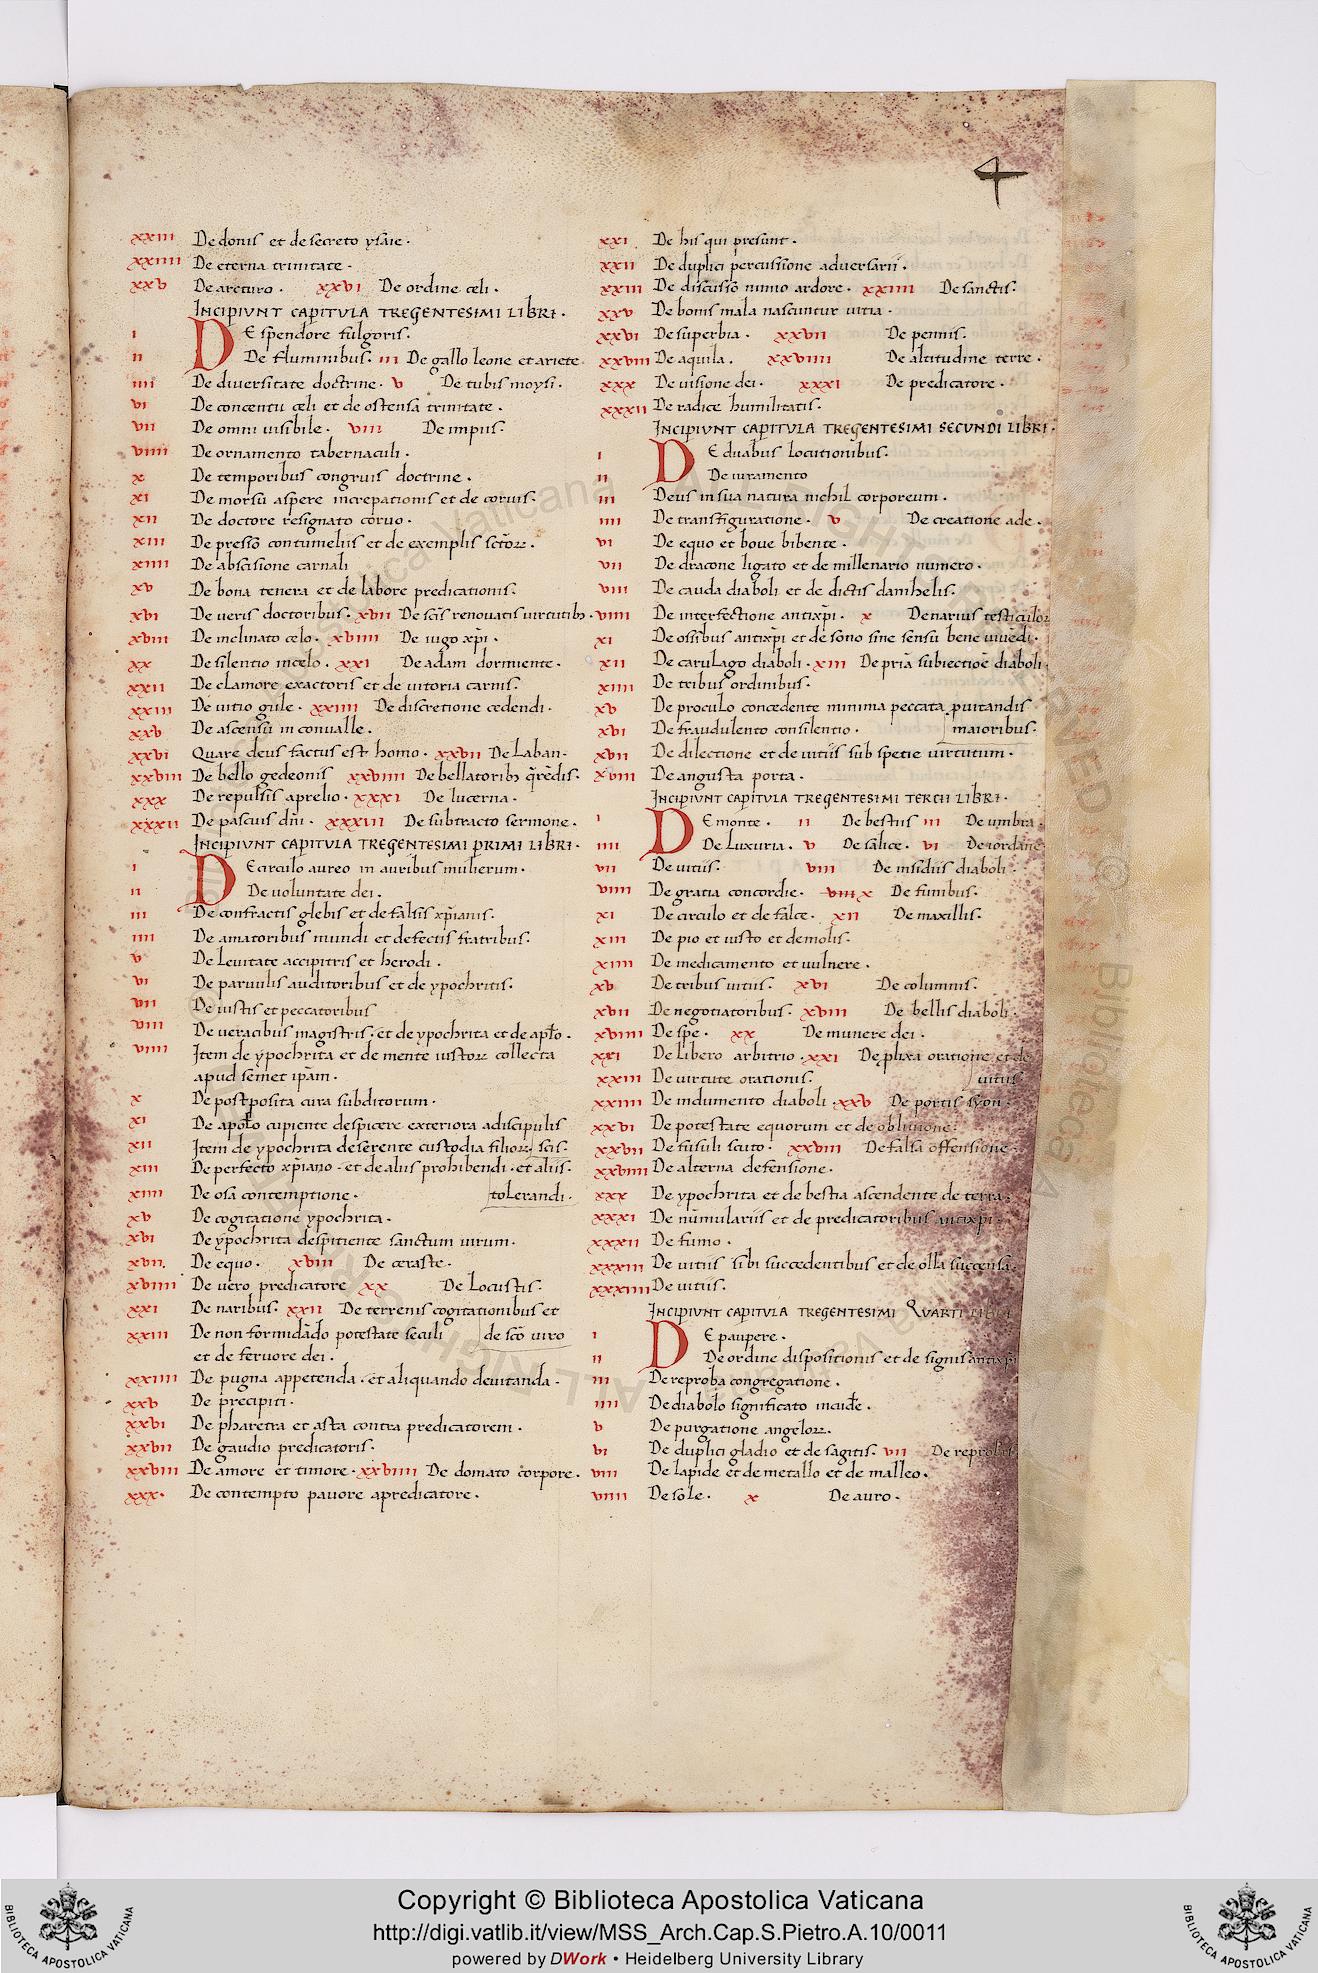 4
xxiii De donis et de secreto ysaie.
xxiiii De eterna trinitate.
xxv De arcturo. xxvi De ordine celi.
INCIPIVNT CAPITVLA TREGENTESIMI LIBRI.
i DE splendore fulgoris.
ii De fluminibus. iii De gallo leone et ariete.
iiii De diversitate doctrine. v De tubis moysi.
vi De concentu celi et de ostensa trinitate.
vii De omni visibile. viii De impiis.
viiii De ornamento tabernaculi.
x De temporibus congruis doctrine.
xi De morsu aspere increpationis et de corvis.
xii De doctore resignato corvo.
xiii De presso contumeliis et de exemplis sctōꝝ.
xiiii De abscisione carnali
xv De bona tenera et de labore predicationis.
xvi De veris doctoribus. xvii De scīs renovatis virtutib;.
xviii De inclinato celo. xviiii De iugo xp̄i.
xx De silentio in celo. xxi De adam dormiente.
xxii De clamore exactoris et de vitoria carnis.
xxiii De vitio gule. xxiiii De discretione cedendi.
xxv De ascensu in convalle.
xxvi Quare deus factus est homo. xxvii De Laban.
xxviii De bello gedeonis xxviiii De bellatorib; q̄rēdis.
xxx De repulsis aprelio. xxxi De lucerna.
xxxii De pascuis dn̄i. xxxiii De subtracto sermone.
INCIPIVNT CAPITVLA TREGENTESIMI PRIMI LIBRI.
i DE circulo aureo in auribus mulierum.
ii De voluntate dei.
iii De confractis glebis et de falsis xp̄ianis.
iiii De amatoribus mundi et defectis fratribus.
v De Levitate accipitris et herodi.
vi De parvulis auditoribus et de ypochritis.
vii De iustis et peccatoribus
viii De veracibus magistris. et de ypochrita et de apl̄o.
viiii Item de ypochrita et de mente iustoꝝ collecta
apud semet ipsam.
x De postposita cura subditorum.
xi De apl̄o cupiente despicere exteriora adiscipulis
xii Item de ypochrita deserente custodia filioꝝ scīs.
xiii De perfecto xp̄iano. et de aliis prohibendi. et aliis.
xiiii De osa contemptione. tolerandi.
xv De cogitatione ypochrita.
xvi De ypochrita despitiente sanctum virum.
xvii. De equo. xviii De ceraste.
xviiii De vero predicatore xx De Locustis.
xxi De naribus. xxii De terrenis cogitationibus et
xxiii De non formidādo potestate seculi de scō viro
et de fervore dei.
xxiiii De pugna appetenda. et aliquando devitanda.
xxv De precipiti.
xxvi De pharetra et asta contra predicatorem.
xxvii De gaudio predicatoris.
xxviii De amore et timore. xxviiii De domato corpore.
xxx. De contempto pavore apredicatore.
xxi De his qui presunt.
xxii De duplici percussione adversarii.
xxiii De discusso nimio ardore. xxiiii De sanctis.
xxv De bonis mala nascuntur vitia.
xxvi De superbia. xxvii De pennis.
xxviii De aquila. xxviiii De altitudine terre.
xxx De visione dei. xxxi De predicatore.
xxxii De radice humilitatis.
INCIPIVNT CAPITVLA TREGENTESIMI SECVNDI LIBRI.
i DE duabus locutionibus.
ii De iuramento
iii Deus in sua natura nichil corporeum.
iiii De transfiguratione. v De creatione ade.
vi De equo et bove bibente.
vii De dracone ligato et de millenario numero.
viii De cauda diaboli et de dictis danihelis.
viiii De interfectione antixp̄i. x De narius testiculoꝝ
xi De ossibus antixp̄i et de sono sine sensu bene vivēdi.
xii De carulago diaboli. xiii De priā subiectioē diaboli.
xiiii De tribus ordinibus.
xv De proculo concedente minima peccata p vitandis
xvi De fraudulento consilentio. maioribus.
xvii De dilectione et de vitiis sub spetie virtutum.
xviii De angusta porta.
INCIPIVNT CAPITVLA TREGENTESIMI TERCII LIBRI.
i DE monte. ii De bestiis iii De umbra.
iiii De Luxuria. v De salice. vi De iordane
vii De vitiis. viii De insidiis diaboli.
viiii De gratia concordie. viiii x De funibus.
xi De circulo et de falce. xii De maxillis.
xiii De pio et iusto et de molis.
xiiii De medicamento et vulnere.
xv De tribus vitiis. xvi De columnis.
xvii De negotiatoribus. xviii De bellis diaboli.
xviiii De spe. xx De munere dei.
xxi De libero arbitrio. xxi De plixa oratione et de
xxiii De virtute orationis. vitiis.
xxiiii De indumento diaboli. xxv De portis syon.
xxvi De potestate equorum et de oblivione.
xxvii De fusuli scuto. xxviii De falsa offensione.
xxviiii De alterna defensione.
xxx De ypochrita et de bestia ascendente de terra.
xxxi De nūmulariis et de predicatoribus antixp̄i.
xxxii De fumo.
xxxiii De vitiis sibi succedentibus et de olla succensa.
xxxiiii De vitiis.
INCIPIVNT CAPITVLA TREGENTESIMI QVARTI LIBRI
i DE paupere.
ii De ordine dispositionis et de signis antixp̄i
iii De reproba congregatione.
iiii De diabolo significato incude.
v De purgatione angeloꝝ.
vi De duplici gladio et de sagitis. vii De reprobis.
viii De lapide et de metallo et de malleo.
viiii De sole. x De auro.
Copyright © Biblioteca Apostolica Vaticana
http://digi.vatlib.it/view/MSS_Arch.Cap.S.Pietro.A.10/0011
powered by DWork • Heidelberg University Library
BIBLIOTECA APOSTOLICA VATICANA
BIBLIOTECA APOSTOLICA VATICANA